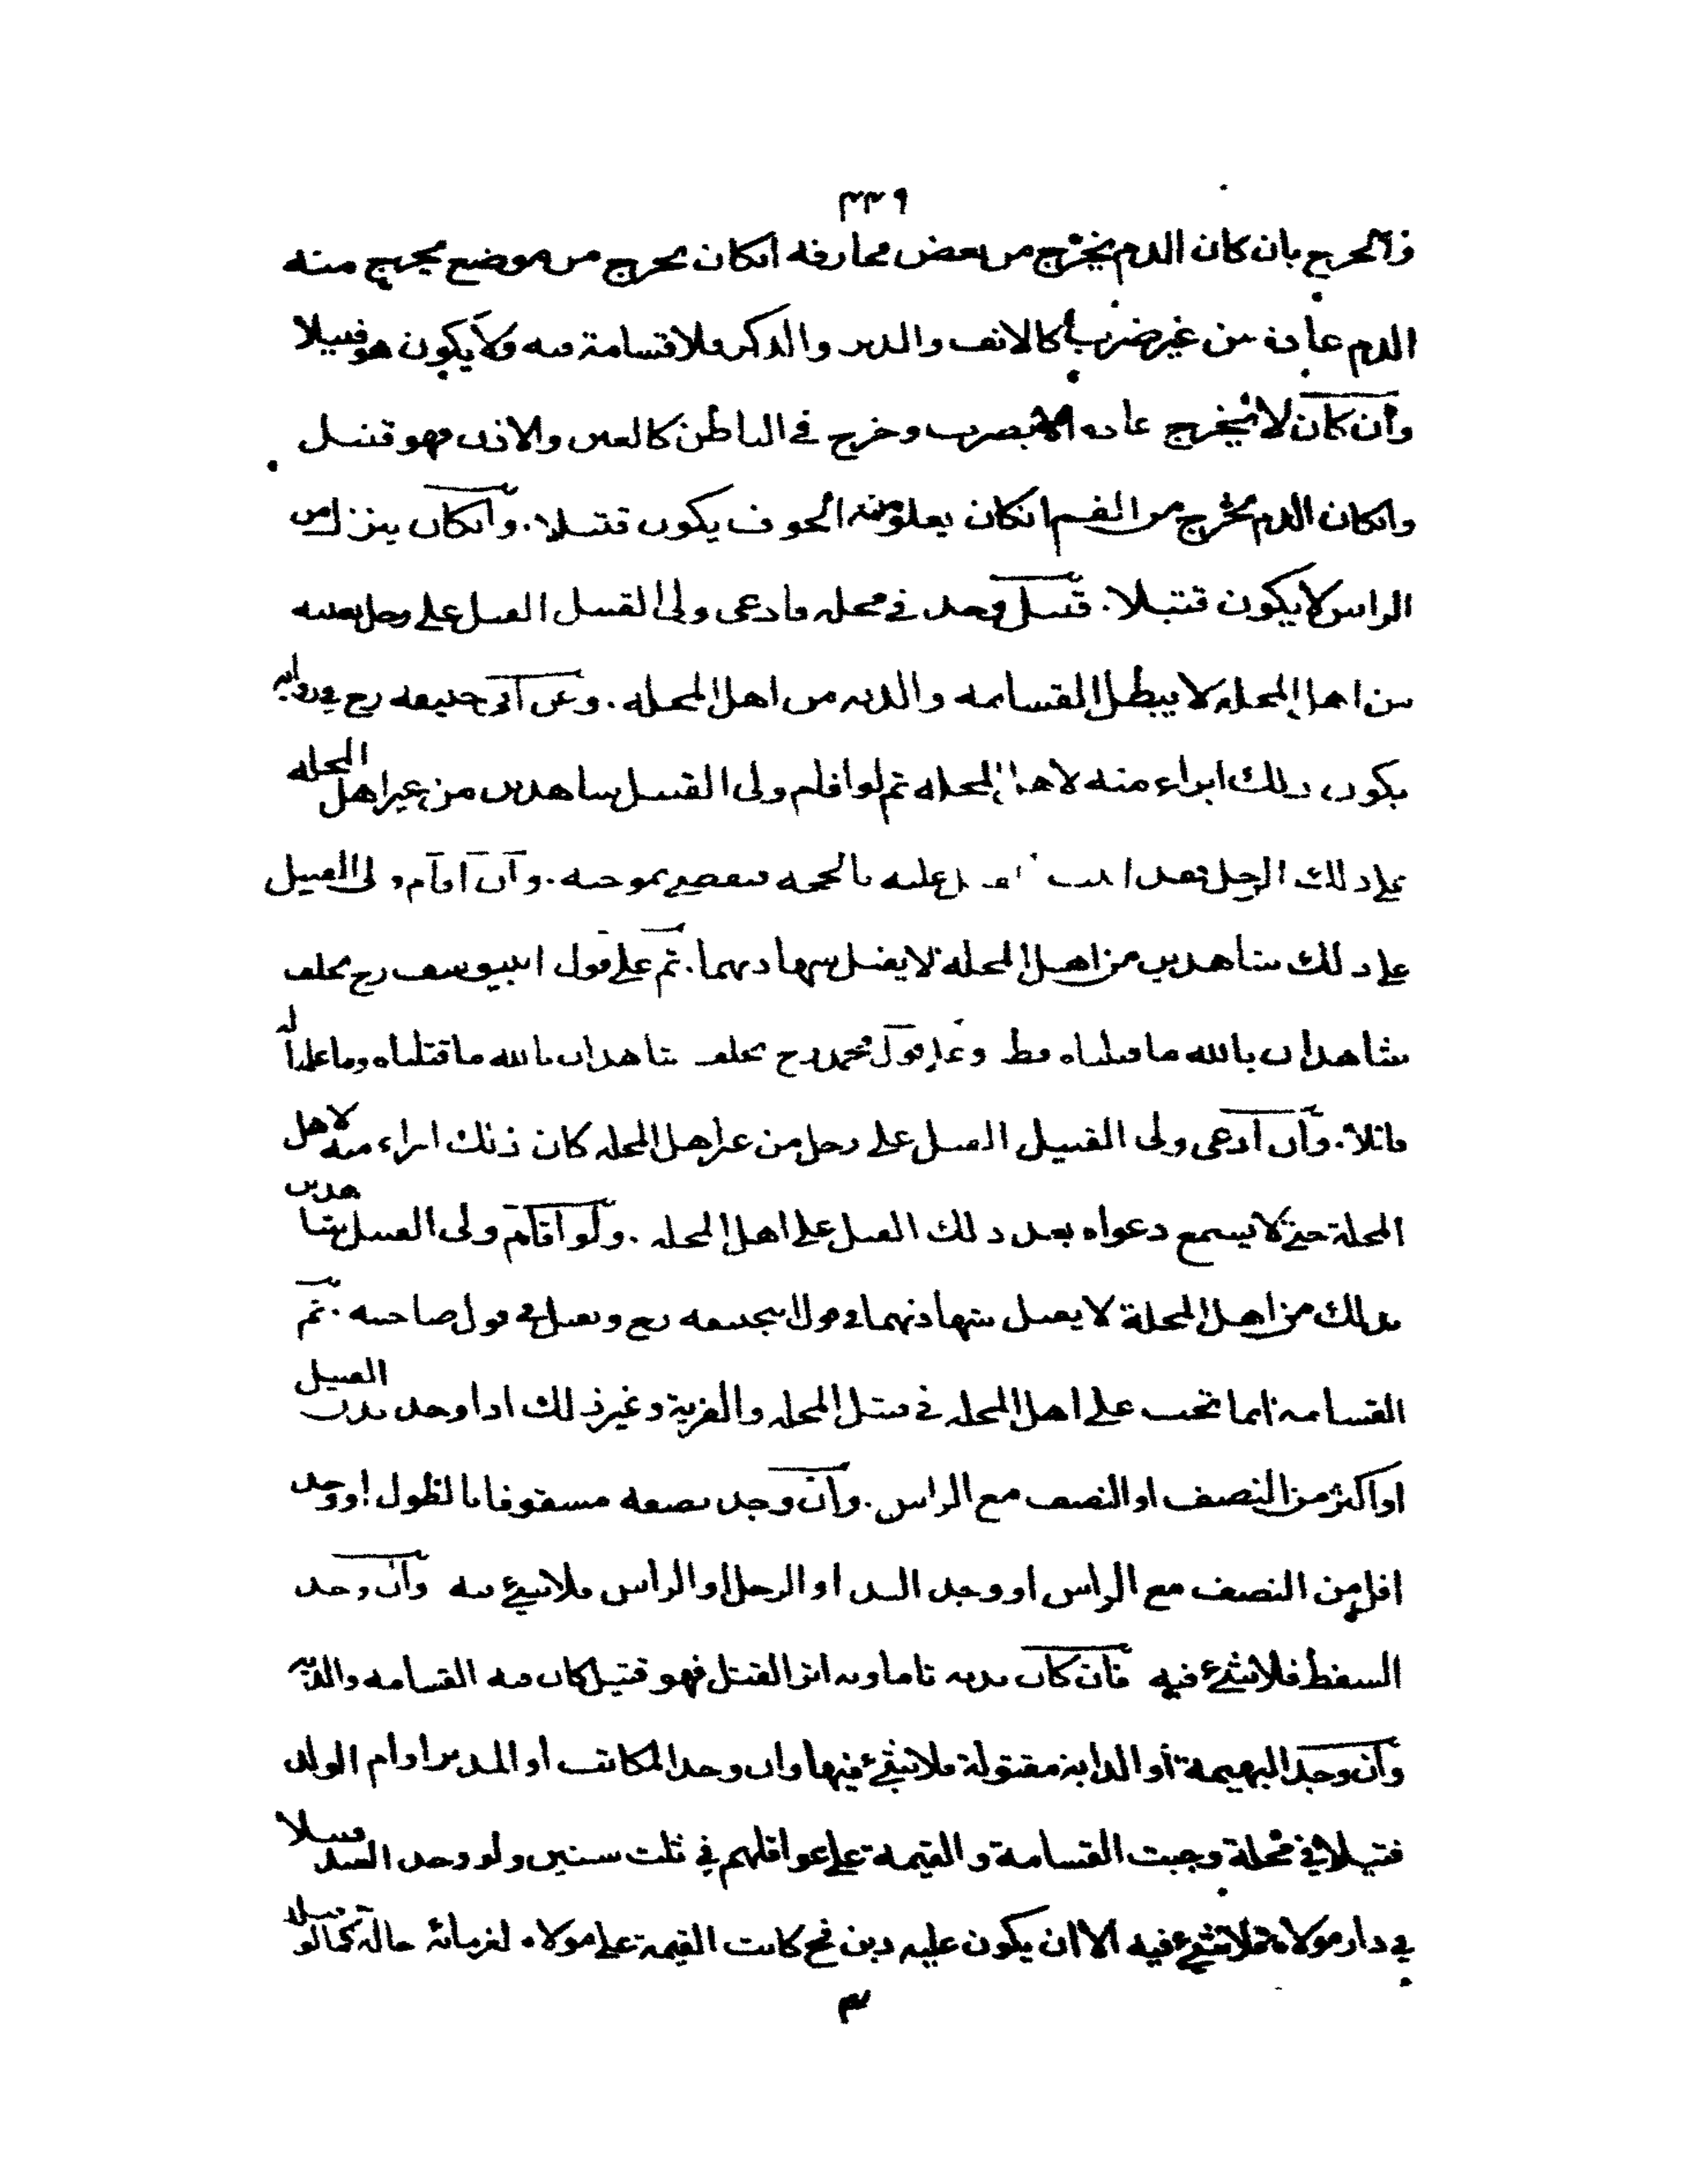 ٣٣٩
والجرح بان كان الدم يخرج من بعض مخارقه انكان يخرج من موضع يخرج منه
الدم عادة من غير ضرب كالانف والدبر والذكر فلا قسامة فيه ولا يكون هو قتيلا
وان كان لا يخرج عادة الا بضرب وخرج في الباطن كالعين والاذن فهو قتيل
وانكان الدم يخرج من الفم انكان يعلو منه الجوف يكون قتيلا. وانكان ينزل من
الراس لا يكون قتيلا. قتيل وجد في محله فادعى ولى القتيل القتل على رجل بعينه
من اهل المحله لا يبطل القسامه والديه من اهل المحله. وعن ابى حنيفه رح في روايه
يكون ذلك ابراء منه لاهل المحله ثم لو اقام ولى القتيل شاهدين من غير اهل المحله
على ذلك الرجل فعد عليه بالحجه فيقضي بموجبه. وان اقام ولى القتيل
على ذلك شاهدين من اهل المحلة لا يقبل شهادتهما. ثم على قول ابييوسف رح يحلف
شاهدان بالله ما قتلناه فقط وعلى قول محمد رح يحلف شاهدان بالله ما قتلناه وما علمنا له
قاتلا. وان ادعى ولى القتيل القتل على رجل من غير اهل المحله كان ذلك ابراء منه لاهل
المحلة حتى لا يسمع دعواه بعد ذلك القتل على اهل المحله. ولو اقام ولى القتيل شاهدين
بذلك من اهل المحلة لا يقبل شهادتهما في قول ابيحنيفه رح ويقبل في قول صاحبيه. ثم
القسامه انما تجب على اهل المحله في قتيل المحله والقرية وغير ذلك اذا وجد بدن القتيل
او اكثر من النصف او النصف مع الراس. وان وجد نصفه مشقوقا بالطول او وجد
اقل من النصف مع الراس او وجد اليد او الرجل او الراس فلا شيء فيه وان وجد
السقط فلا شيء فيه فان كان بدنه تاما وبه اثر القتل فهو قتيل كان فيه القسامه والديه
وان وجد البهيمة او الدابة مقتولة فلا شيء فيها وان وجد المكاتب او المدبر او ام الولد
قتيلا في محلة وجبت القسامة والقيمة على عواقلهم في ثلث سنين ولو وجد العبد قتيلا
في دار مولاه فلا شيء فيه الا ان يكون عليه دين فح كانت القيمة على مولاه لغرمائه حالة كما لو قتله
٣